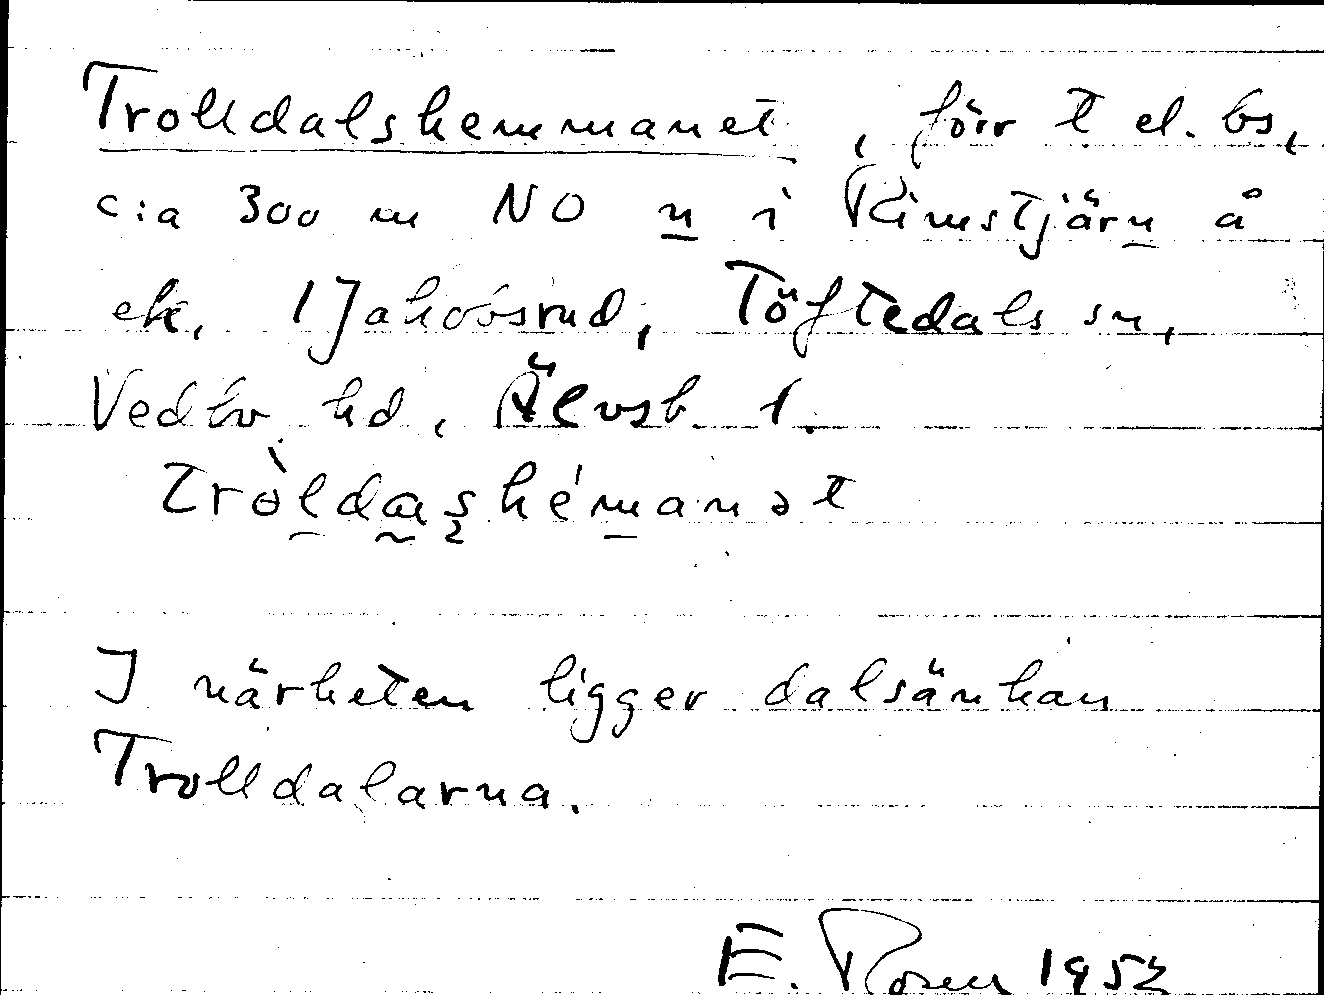 Trolldalshemmanet, förr t el. bs,
c:a 300 m NO n i Rimstjärn å
ek. 1 Jakobsrud, Töftedals sn,
Vedbo hd, Älvsb. l.
tròldaʂhémanət
I närheten ligger dalsänkan
Trolldalarna.
E. Rosen 1952